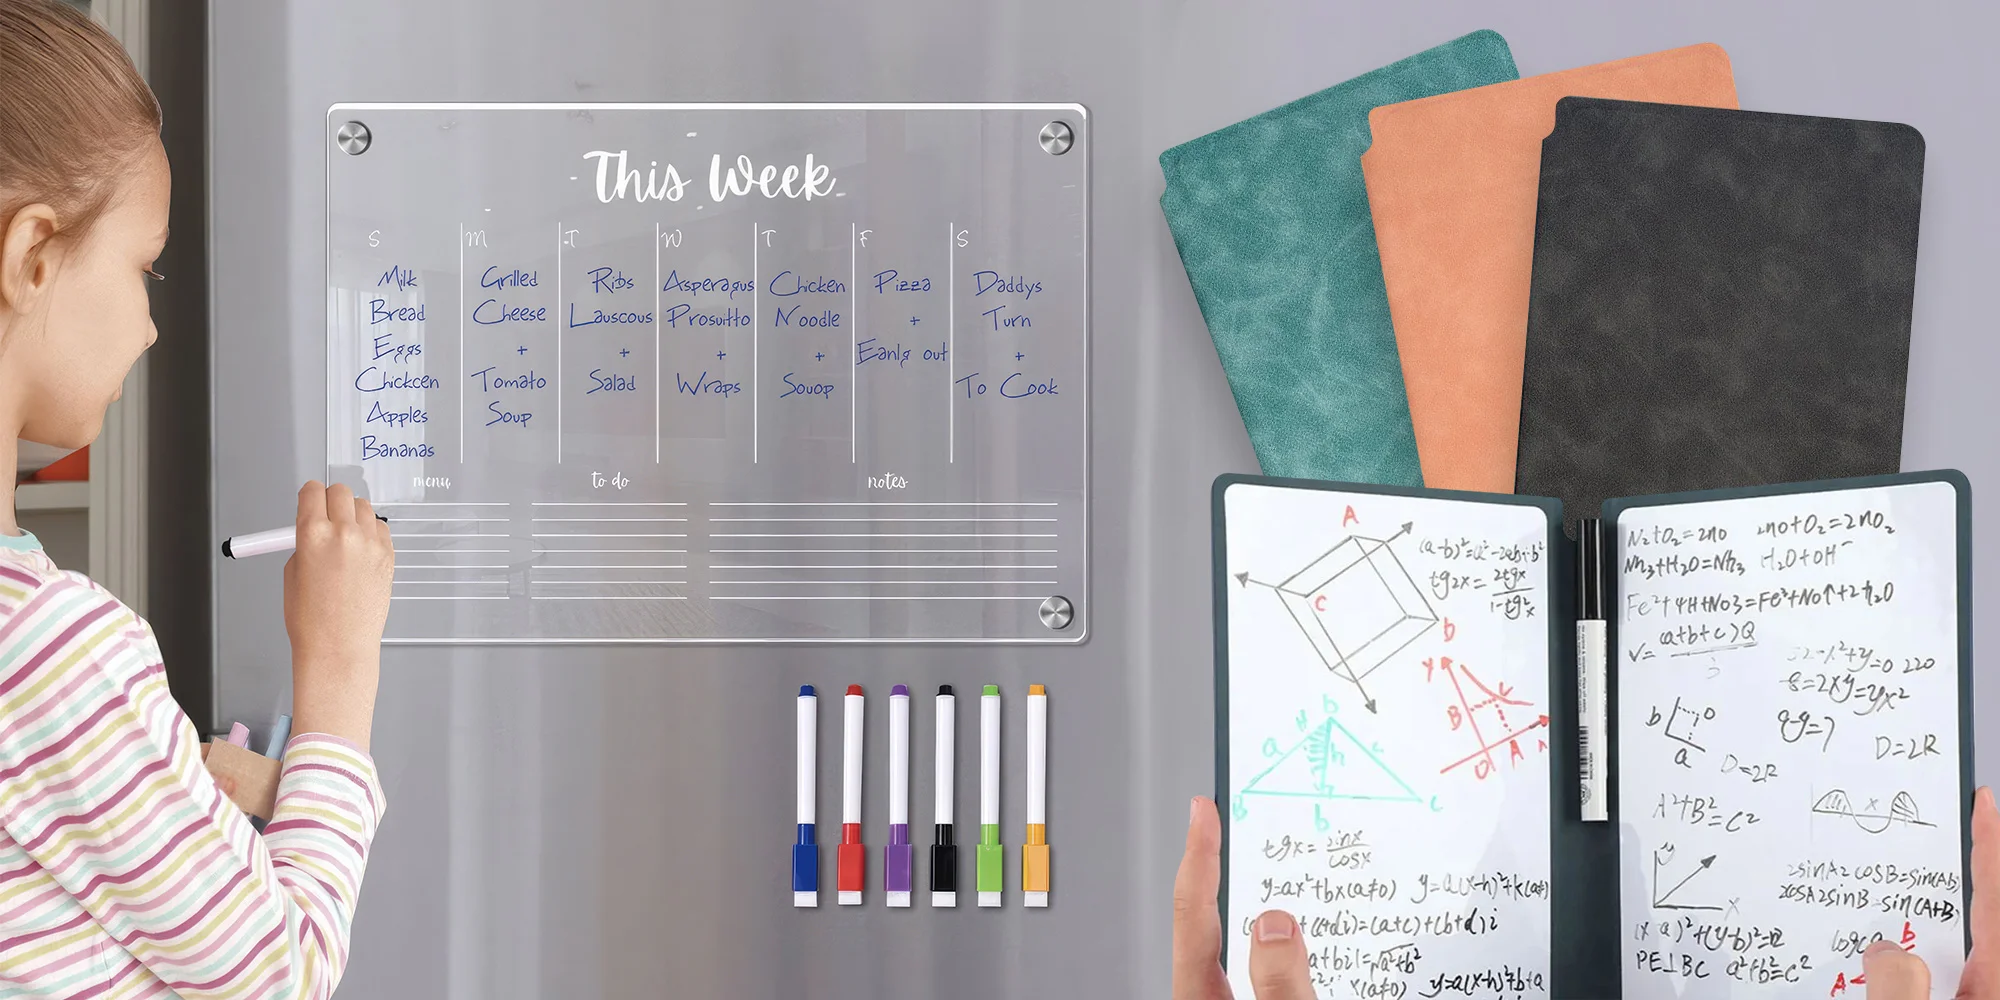 This Week
S M T W T F S
Milk
Bread
Eggs
Chickcen
Apples
Bananas
Grilled
Cheese
+
Tomato
Soup
Ribs
Lauscous
+
Salad
Asperagus
Prosuitto
+
Wraps
Chicken
Noodle
+
Souop
Pizza
+
Eanlg out
Daddys
Turn
+
To Cook
menu
to do
notes
A
C
b
(a-b)²=a²-2ab+b²
tg2x=2tgx/1-tg²x
Y
C
B
A
O
b
H
a
c
h
B
b
C
tgx=sinx/cosx
y=ax²+bx(a≠0) y=a(x-h)²+k(a≠
+(c+di)=(a+c)+(b+d)i
a+bi|=√a²+b²
(a≠0) y=a(x-h)²+b+a
N₂+O₂=2no 2no+O₂=2nO₂
Nh₃+H₂O=Nh₃ H₂O+OH⁻
Fe²+4H+No3=Fe³+No↑+2h₂O
V=(a+b+c)Q/3
52-x²+y=0 220
8=2xy=yx²
b
o
a
q-g=7
D=2R
D=2R
A²+B²=C²
x
y
X
2sinA2cosB=sin(AB)
2cosA2sinB=sin(A+B)
(x a)²+(y-b)²=
PE⊥BC a²+b²=c²
log
b
A